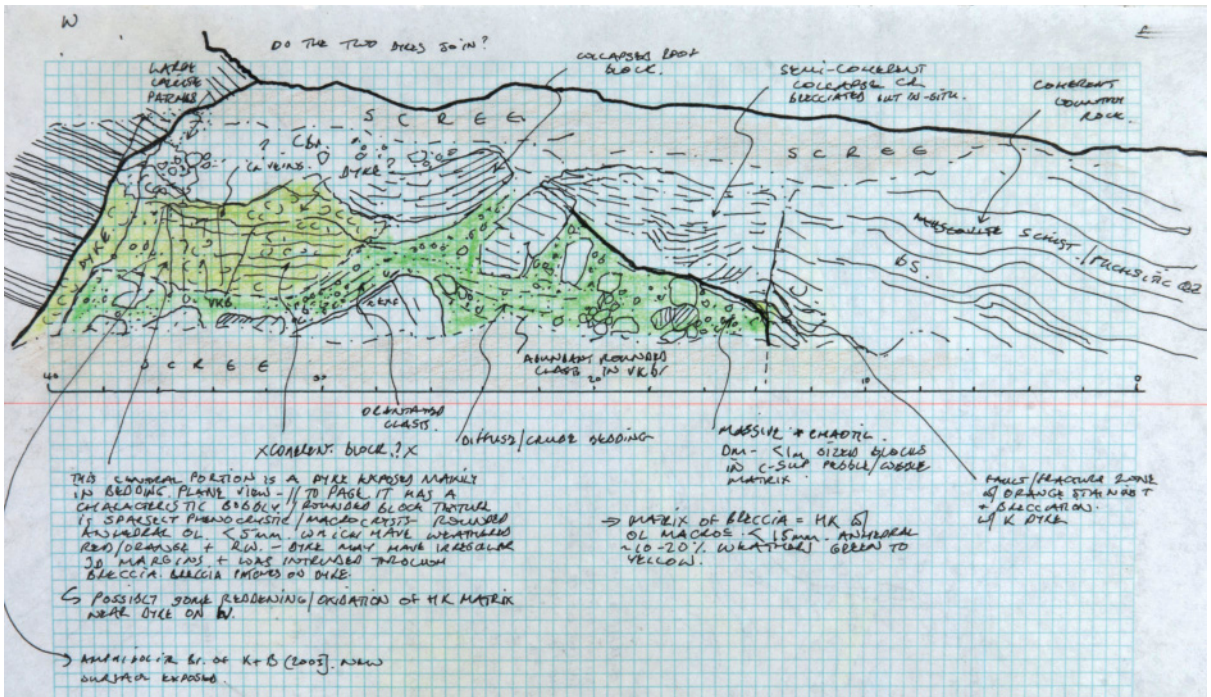 W
E
DO THE TWO DYKES JOIN?
LARGE
CALCITE
COLLAPSED ROOF
BLOCK.
SEMI-COHERENT
COLLAPSE CR
BRECCIATED BUT IN-SITU.
COHERENT
COUNTRY
ROCK.
SCREE
SCREE
?
CR VEINS
DYKE?
DYKE
MUSCOVITE SCHIST / FUCHSITIC QZ
VKB
SCREE
40
30
20
10
0
ABUNDANT ROUNDED
CLASTS IN VKB/
ORENTATED
CLASTS.
XCOHERENT BLOCK.?X
DIFFUSE/CRUDE BEDDING
MASSIVE + CHAOTIC
DM- <1m SIZED BLOCKS
IN PEBBLE/
MATRIX
FAULT/FRACTURE ZONE
W/ ORANGE STAINING +
+ BRECCIATION.
W/ K DYKE
THIS CENTRAL PORTION IS A DYKE EXPOSED MAINLY
IN BEDDING PLANE VIEW - // TO PAGE. IT HAS A
CHARACTERISTIC BOBBLY/ROUNDED BLOCK TEXTURE
IS SPARSELY PHENOCRYSTIC/MACROCRYSTS ROUNDED
ANHEDRAL OL. <5mm. WHICH HAVE WEATHERED
RED/ORANGE + RW. - DYKE MAY HAVE IRREGULAR
3D MARGINS + WAS INTRUDED THROUGH
BRECCIA. BRECCIA PATCHES ON DYKE.
↳ POSSIBLY SOME REDDENING/OXIDATION OF HK MATRIX
NEAR DYKE ON W.
→ MATRIX OF BRECCIA = HK W/
OL MACROS. <15mm. ANHEDRAL
~10-20% WEATHERS GREEN TO
YELLOW.
→ BR. OF K+B (2005). NEW
SURFACE EXPOSED.